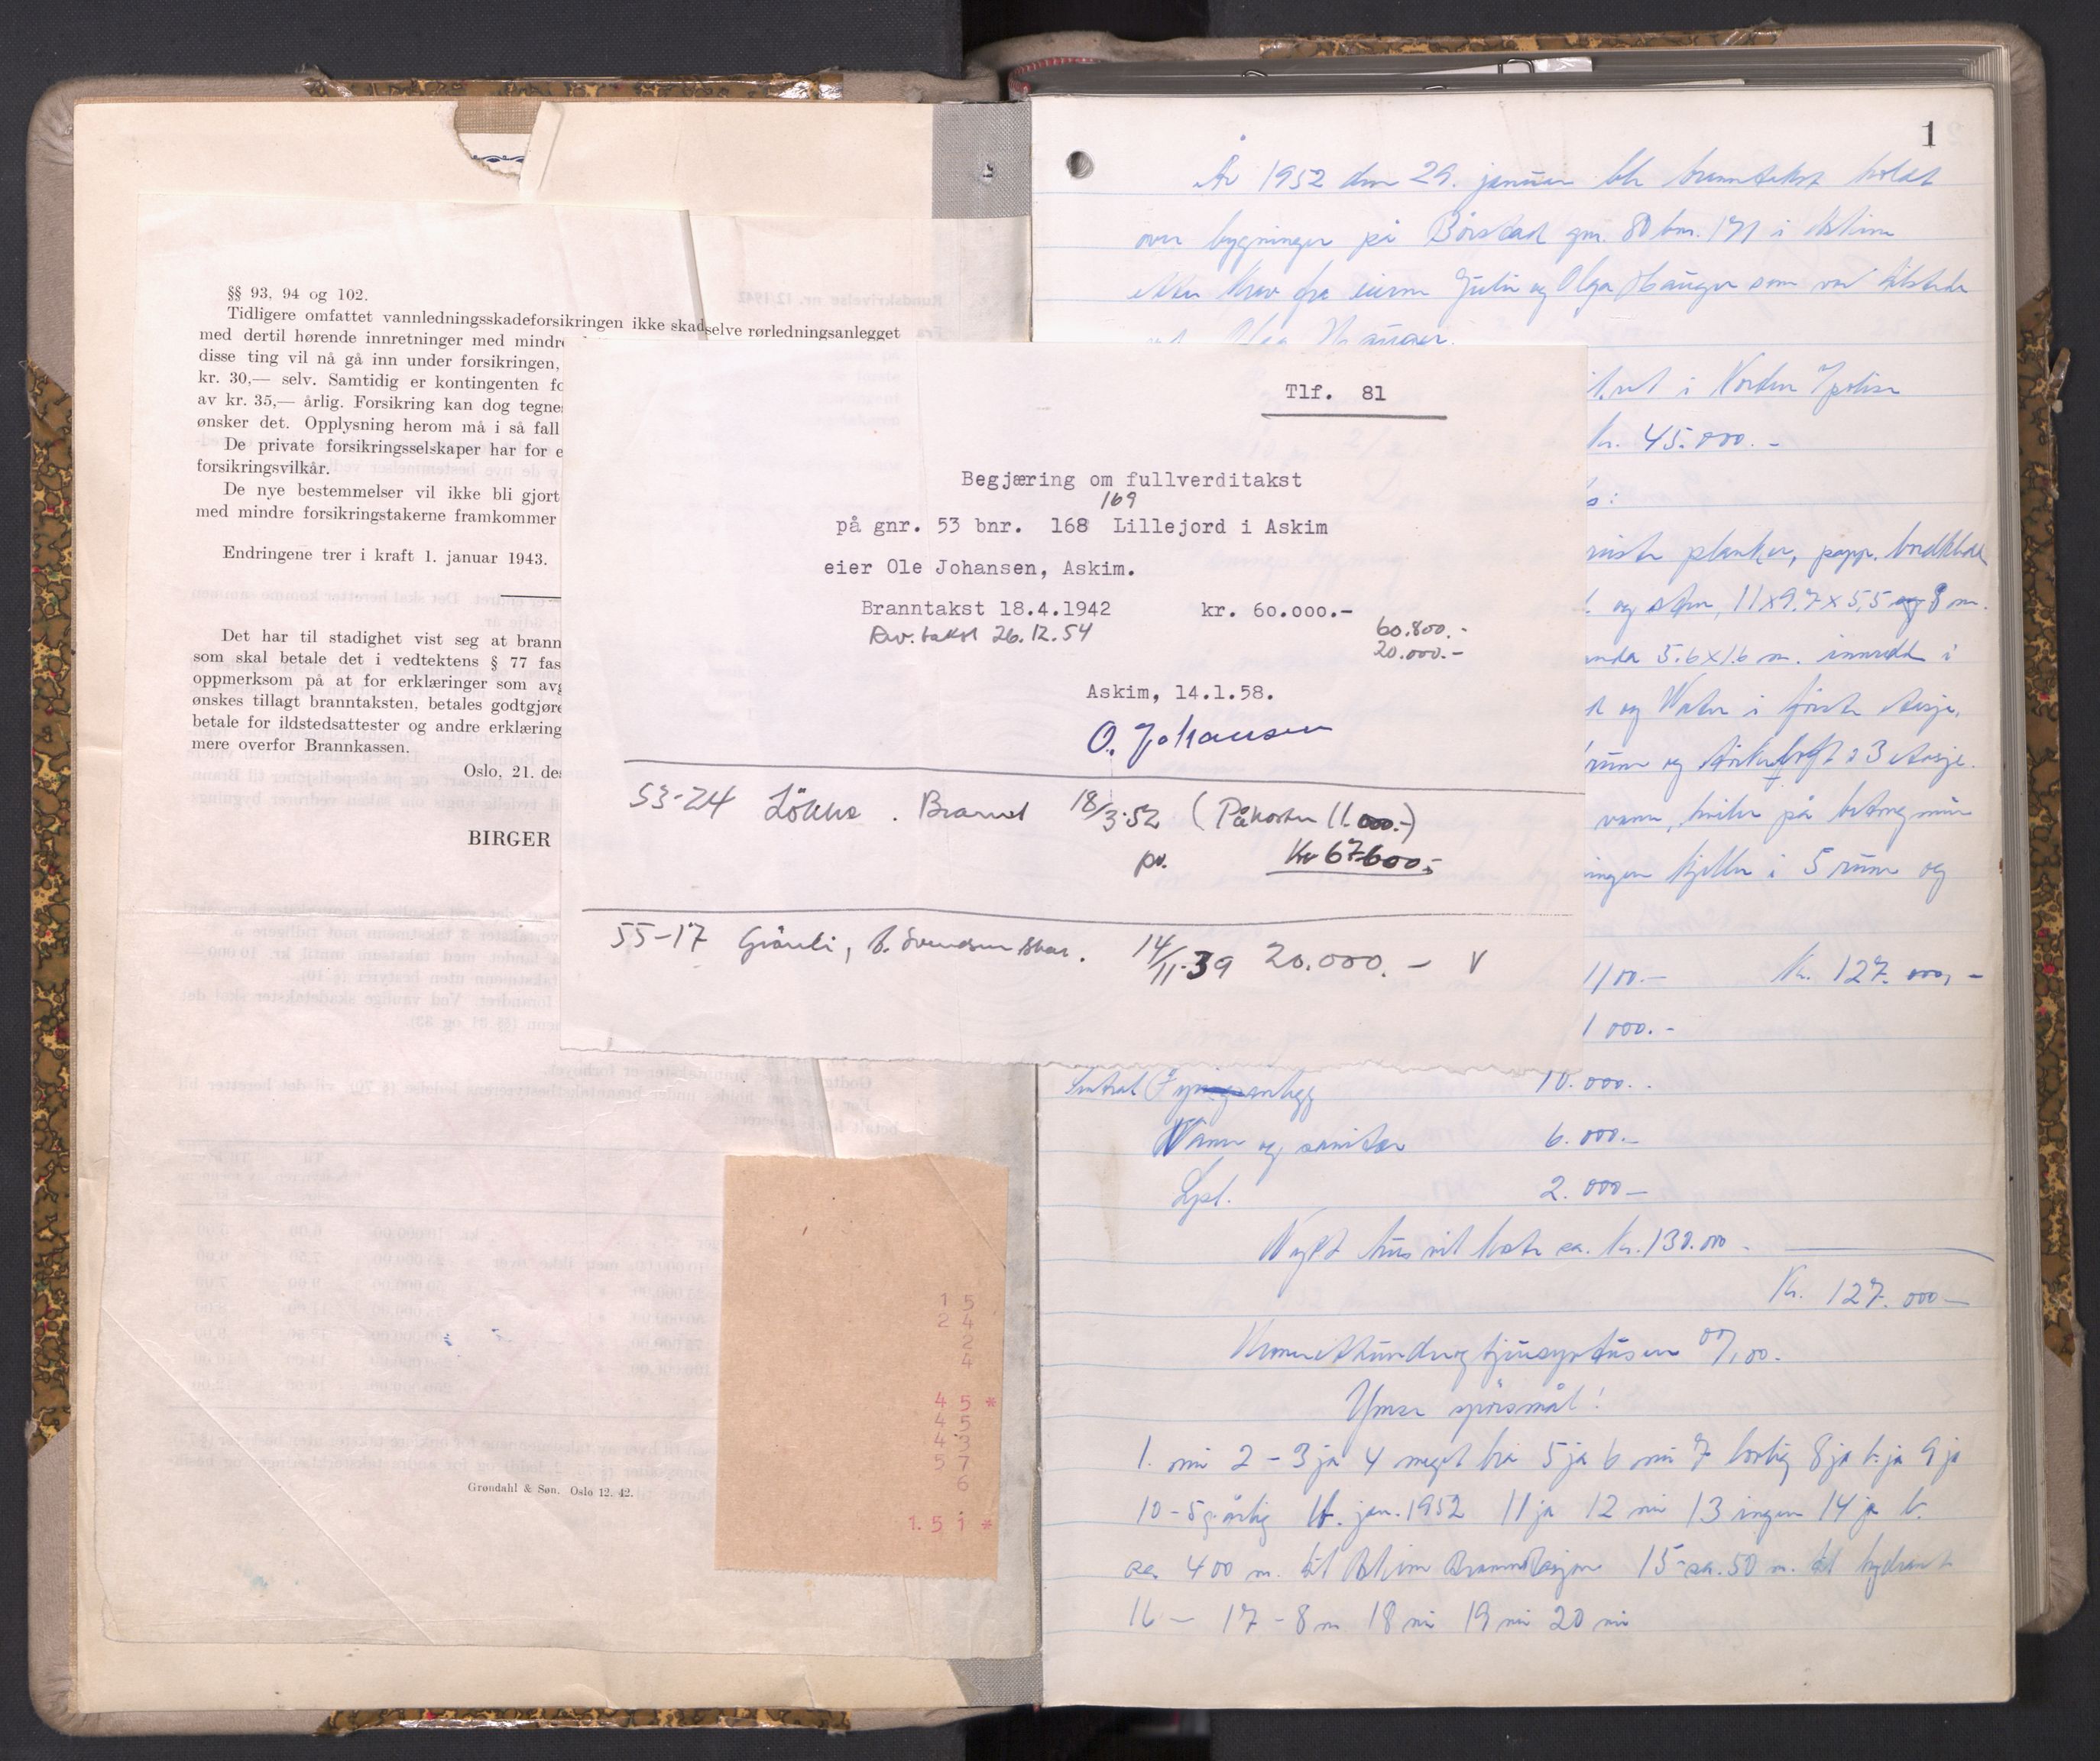 §§ 93, 94 og 102.
Tidligere omfattet vannledningsskadeforsikringen ikke skad selve rørledningsanlegget
med dertil hørende innretninger med mindre
disse ting vil nå gå inn under forsikringen,
kr. 30,— selv. Samtidig er kontingenten fo
av kr. 35,— årlig. Forsikring kan dog tegne
ønsker det. Opplysning herom må i så fall
De private forsikringsselskaper har for e
forsikringsvilkår.
De nye bestemmelser vil ikke bli gjort
med mindre forsikringstakerne framkommer
Endringene trer i kraft 1. januar 1943.
Det har til stadighet vist seg at brann
som skal betale det i vedtektens § 77 fas
oppmerksom på at for erklæringer som avg
ønskes tillagt branntaksten, betales godtgjøre
betale for ildstedsattester og andre erklæring
mere overfor Brannkassen.
Oslo, 21. de
BIRGER
Grøndahl & Søn. Oslo 12. 42.
1 5
2 4
2
4
4 5 *
4 5
4 3
5 7
6
1. 5 1 *
Tlf. 81
Begjæring om fullverditakst
169
på gnr. 53 bnr. 168 Lillejord i Askim
eier Ole Johansen, Askim.
Branntakst 18.4.1942 kr. 60.000.-
Av. takst 26.12.54 60.800.-
20.000.-
Askim, 14.1.58.
O. Johansen
53-24 Løkka . Brannt 18/3-52 (Påkoster 11.000.-)
pr. Kr 67600,-
55-17 Grönli, B. Svendsen 14/11-39 20.000.- V
1
År 1952 den 29. januar ble branntakst holdt
over bygninger på Börstad gnr. 80 bnr. 171 i Askim
etter krav fra eieren Julie og Olga Hauger som var tilstede
ved Olga Hauger.
i Norden
kr. 45.000.-
planker, papp, bordkledd
og sten, 11 x 9.7 x 5,5 og 8 m.
5.6 x 1.6 m. innredd i
og Water i förste etasje,
rum og törkeloft i 3 etasje.
vann, hviler på betongmur
kjeller i 5 rum og
1100.- Kr. 127.000,-
1 000.-
Sentral Fyringsanlegg 10.000.-
Vann og sanitær 6.000.-
Lysl. 2.000-
Nytt hus vil koste ca. kr. 130.000 -
Kr. 127.000-
Kroner Etthundreogtjuesyvtusen 00/100.
Ymse spörsmål!
1. nei 2 - 3 ja 4 meget bra 5 ja 6 nei 7 lovlig 8 ja b. ja 9 ja
10 - 5 g. årlig jan. 1952 11 ja 12 nei 13 ingen 14 ja b.
ca. 400 m. til Askim Brannstasjon 15 - ca. 50 m. til hydrant
16 - 17 - 8 m 18 nei 19 nei 20 nei